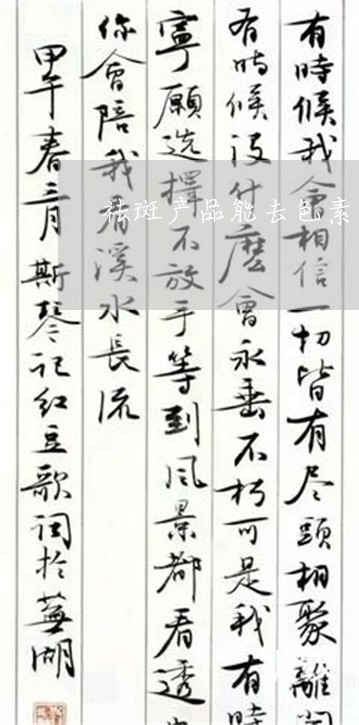 有時候我會相信一切皆有尽頭相聚離開
有時候没什麽會永垂不朽可是我有時
寧願选擇不放手等到风景都看透
你會陪我看溪水長流
甲午春三月斯琴记红豆歌词扵蕪湖
祛斑产品能去色素